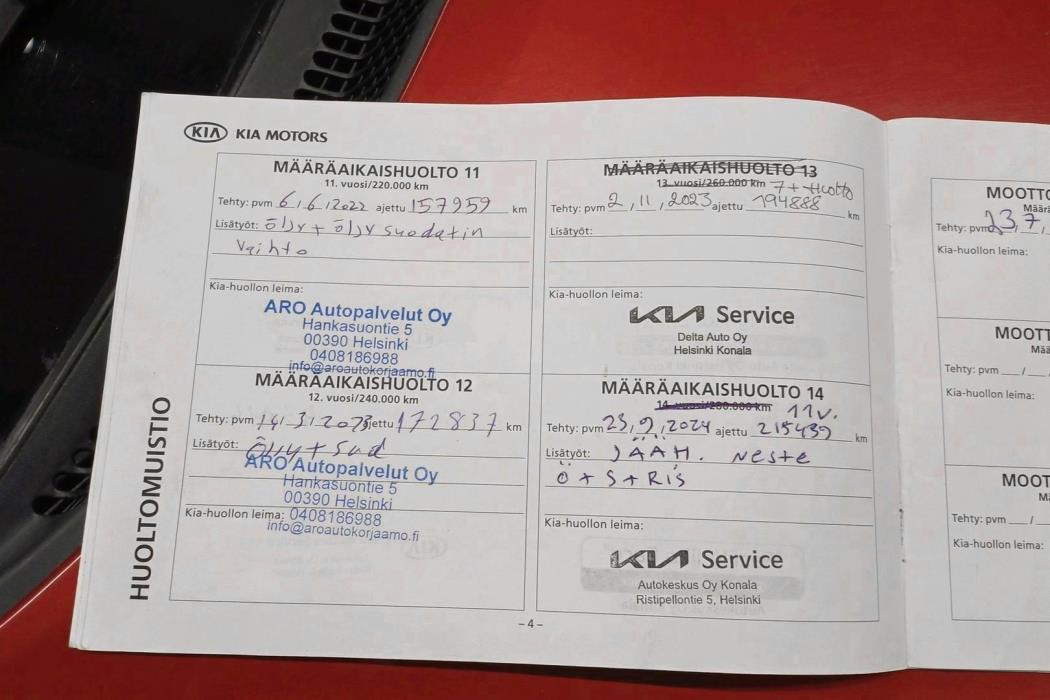 KIA KIA MOTORS
HUOLTOMUISTIO
MÄÄRÄAIKAISHUOLTO 11
11. vuosi/220.000 km
Tehty: pvm 6,6,2022 ajettu 157959 km
Lisätyöt: öljy + öljy suodatin
vaihto
Kia-huollon leima:
ARO Autopalvelut Oy
Hankasuontie 5
00390 Helsinki
0408186988
info@aroautokorjaamo.fi
MÄÄRÄAIKAISHUOLTO 12
12. vuosi/240.000 km
Tehty: pvm 14.3.2023 ajettu 172837 km
Lisätyöt: Öljy + Sud
ARO Autopalvelut Oy
Hankasuontie 5
00390 Helsinki
Kia-huollon leima: 0408186988
info@aroautokorjaamo.fi
MÄÄRÄAIKAISHUOLTO 13
13. vuosi/260.000 km 7++Huolto
Tehty: pvm 2,11,2023 ajettu 194888 km
Lisätyöt:
Kia-huollon leima:
KIA Service
Delta Auto Oy
Helsinki Konala
MÄÄRÄAIKAISHUOLTO 14
14. vuosi/280.000 km 11v.
Tehty: pvm 23,9,2024 ajettu 215439 km
Lisätyöt: JÄÄH. Neste
Ö + S + RIS
Kia-huollon leima:
KIA Service
Autokeskus Oy Konala
Ristipellontie 5, Helsinki
– 4 –
MOOTTO
Määrä
Tehty: pvm 23,7,
Kia-huollon leima:
MOOTT
Mää
Tehty: pvm __/__
Kia-huollon leima:
MOOT
Mä
Tehty: pvm __/__
Kia-huollon leima: